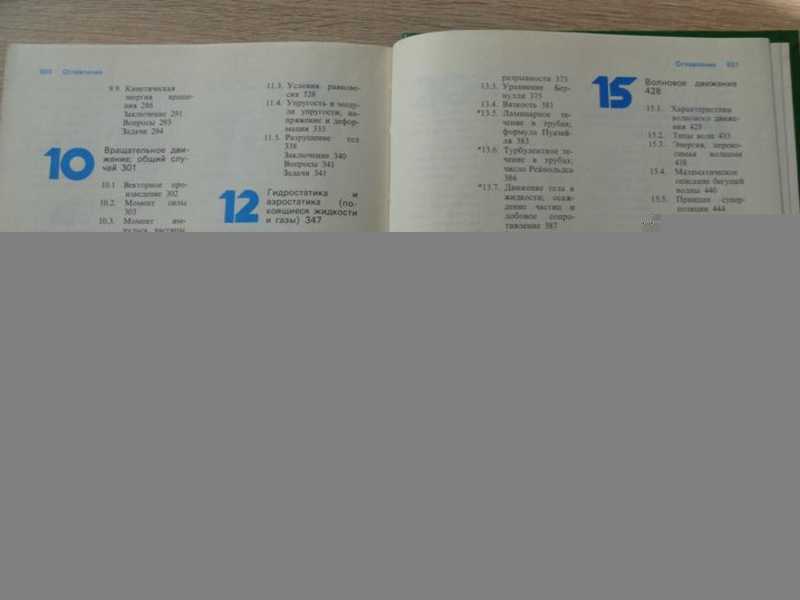 Оглавление
9.9. Кинетическая
энергия враще-
ния 286
Заключение 291
Вопросы 293
Задачи 294
10
Вращательное дви-
жение; общий слу-
чай 301
10.1 Векторное про-
изведение 302
10.2. Момент силы
303
10.3. Момент им-
пульса частицы
11.3. Условия равнове-
сия 328
11.4. Упругость и моду-
ли упругости; на-
пряжение и дефор-
мация 333
11.5. Разрушение тел
338
Заключение 340
Вопросы 341
Задачи 341
12
Гидростатика и
аэростатика (по-
коящиеся жидкости
и газы) 347
Оглавление 551
разрывности 373
13.3. Уравнение Бер-
нулли 375
13.4. Вязкость 381
*13.5. Ламинарное те-
чение в трубах;
формула Пуазей-
ля 383
*13.6. Турбулентное те-
чение в трубах;
число Рейнольдса
386
*13.7. Движение тела в
жидкости; осаж-
дение частиц и
лобовое сопро-
тивление 387
15
Волновое движение
428
15.1. Характеристики
волнового движе-
ния 429
15.2. Типы волн 433
15.3. Энергия, перено-
симая волнами
438
15.4. Математическое
описание бегущей
волны 440
15.5. Принцип супер-
позиции 444